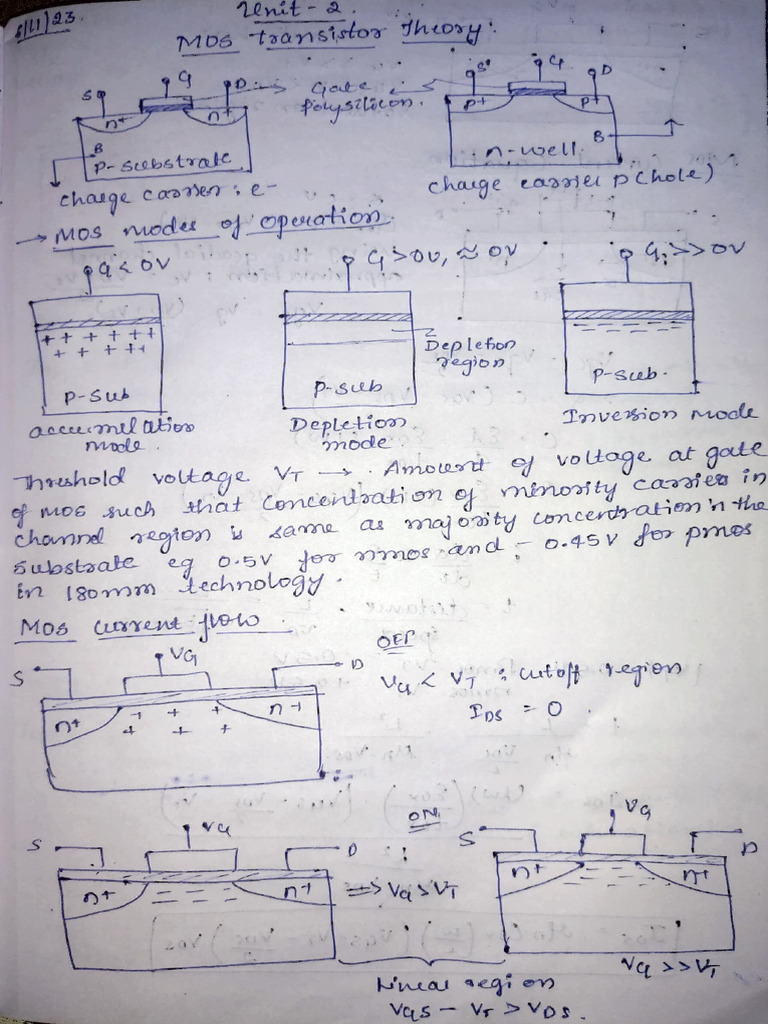 8/11/23
Unit - 2
MOS Transistor Theory:
S G D Gate S G D
n+ n+ polysilicon. p+ p+
B B
P-substrate n-well
charge carrier : e- charge carrier p(hole)
→ MOS modes of operation
G < 0V G > 0V, ≈ 0V G >> 0V
+ + + + + +
+ + + + +
Depletion
region
P-sub P-sub P-sub.
accumulation Depletion Inversion mode
mode. mode
Threshold voltage VT → Amount of voltage at gate
of mos such that concentration of minority carrier in
channel region is same as majority concentration in the
substrate eg 0.5V for nmos and - 0.45V for pmos
in 180mm technology.
MOS current flow
OFF
S VG D
VG < VT : cutoff region
n+ + + + n+
+ + +
IDS = 0
ON
S VG D S VG D
n+ n+ ⇒ VG > VT n+ n+
VG >> VT
Linear region
VGS - VT > VDS.